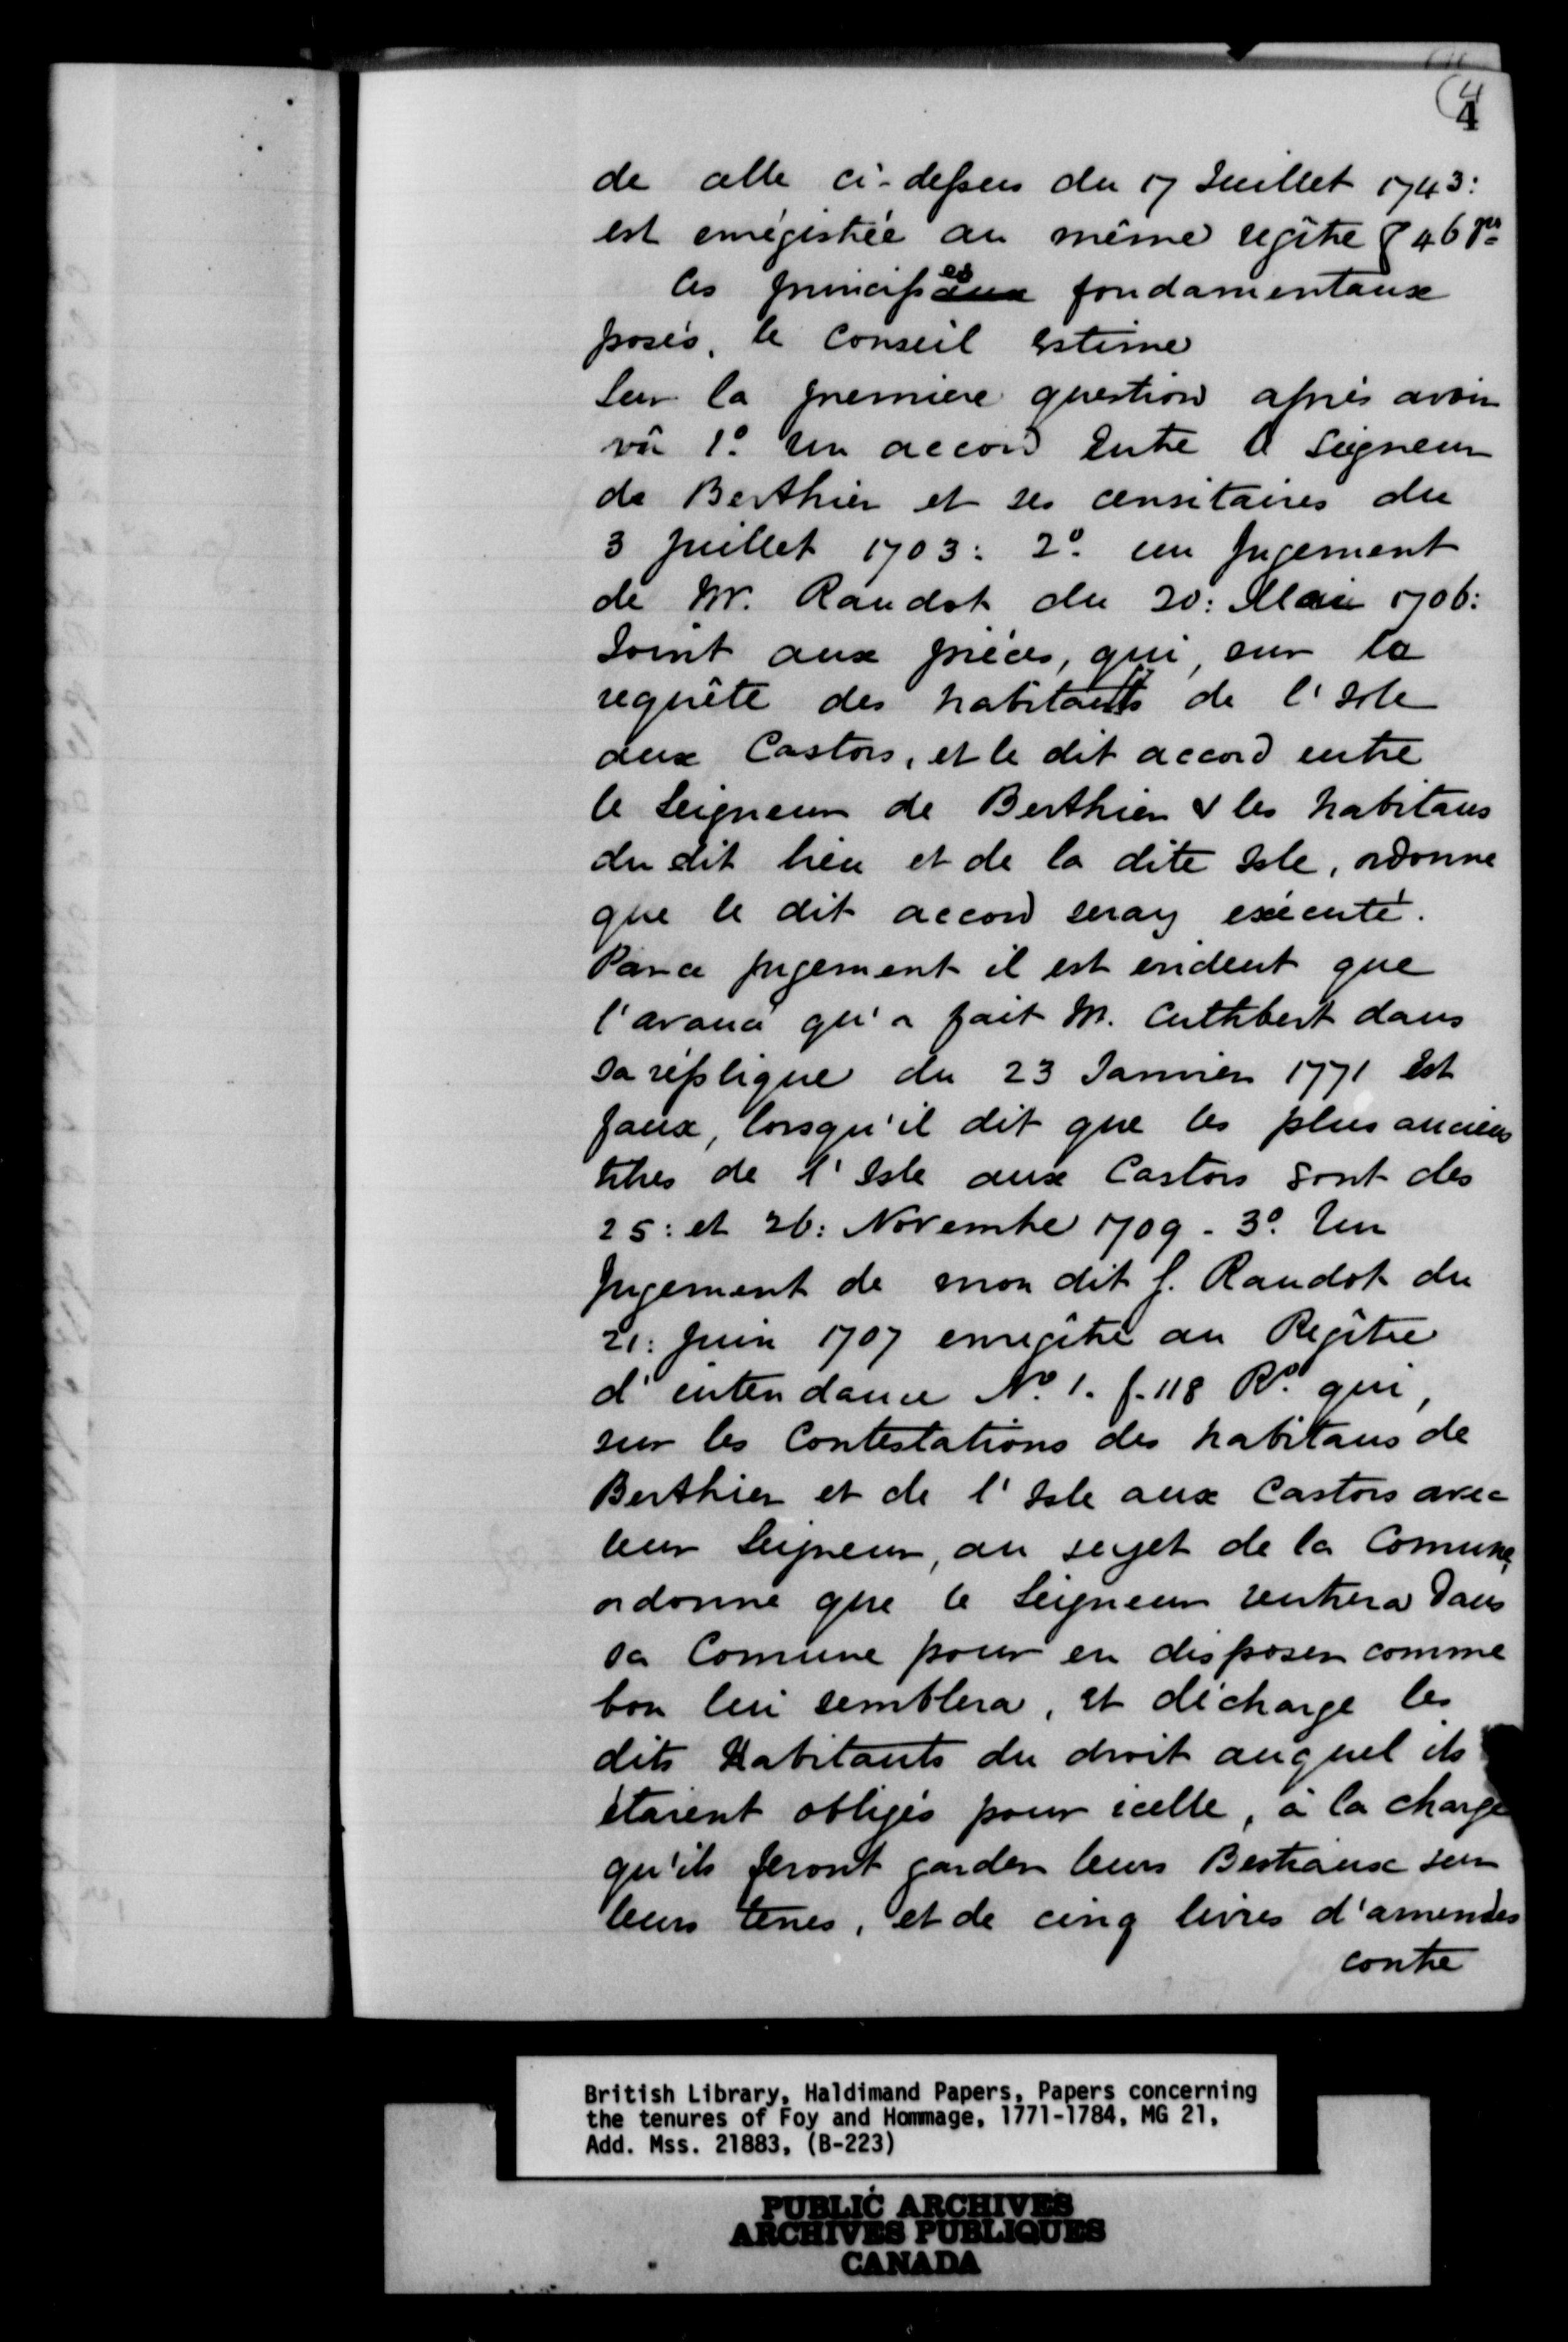 4
de celle ci-dessus du 17 Juillet 1743:
est enregistrée au même regître f 46 Vo
Ces principes fondamentaux
posés, le Conseil Estime
Sur la premiere question après avoir
vû 1o. Un accord Entre le Seigneur
de Berthier et ses censitaires du
3 Juillet 1703: 2o. un Jugement
de Mr. Raudot du 20: Mai 1706:
Joint aux pièces, qui, sur la
requête des habitants de l'Isle
aux Castors, et le dit accord entre
le Seigneur de Berthier & les habitans
du dit lieu et de la dite Isle, ordonne
que le dit accord seray exécuté.
Par ce jugement il est evident que
l'avancé qu'a fait M. Cuthbert dans
sa réplique du 23 Janvier 1771 Est
faux, lorsqu'il dit que les plus anciens
titres de l'Isle aux Castors sont des
25: et 26: Novembre 1709. 3o. Un
Jugement de mon dit S. Raudot du
21: Juin 1707 enregîtré au Regître
d'intendance No. 1. f. 118 Ro. qui,
sur les Contestations des habitans de
Berthier et de l'Isle aux Castors avec
leur Seigneur, au sujet de la Comune,
ordonne que le Seigneur rentrera dans
sa Comune pour en disposer comme
bon lui semblera, et décharge les
dits Habitants du droit auquel ils
étaient obligés pour icelle, à la charge
qu'ils feront garder leurs Bestiaux sur
leurs terres, et de cinq livres d'amendes
contre
British Library, Haldimand Papers, Papers concerning
the tenures of Foy and Hommage, 1771-1784, MG 21,
Add. Mss. 21883, (B-223)
PUBLIC ARCHIVES
ARCHIVES PUBLIQUES
CANADA